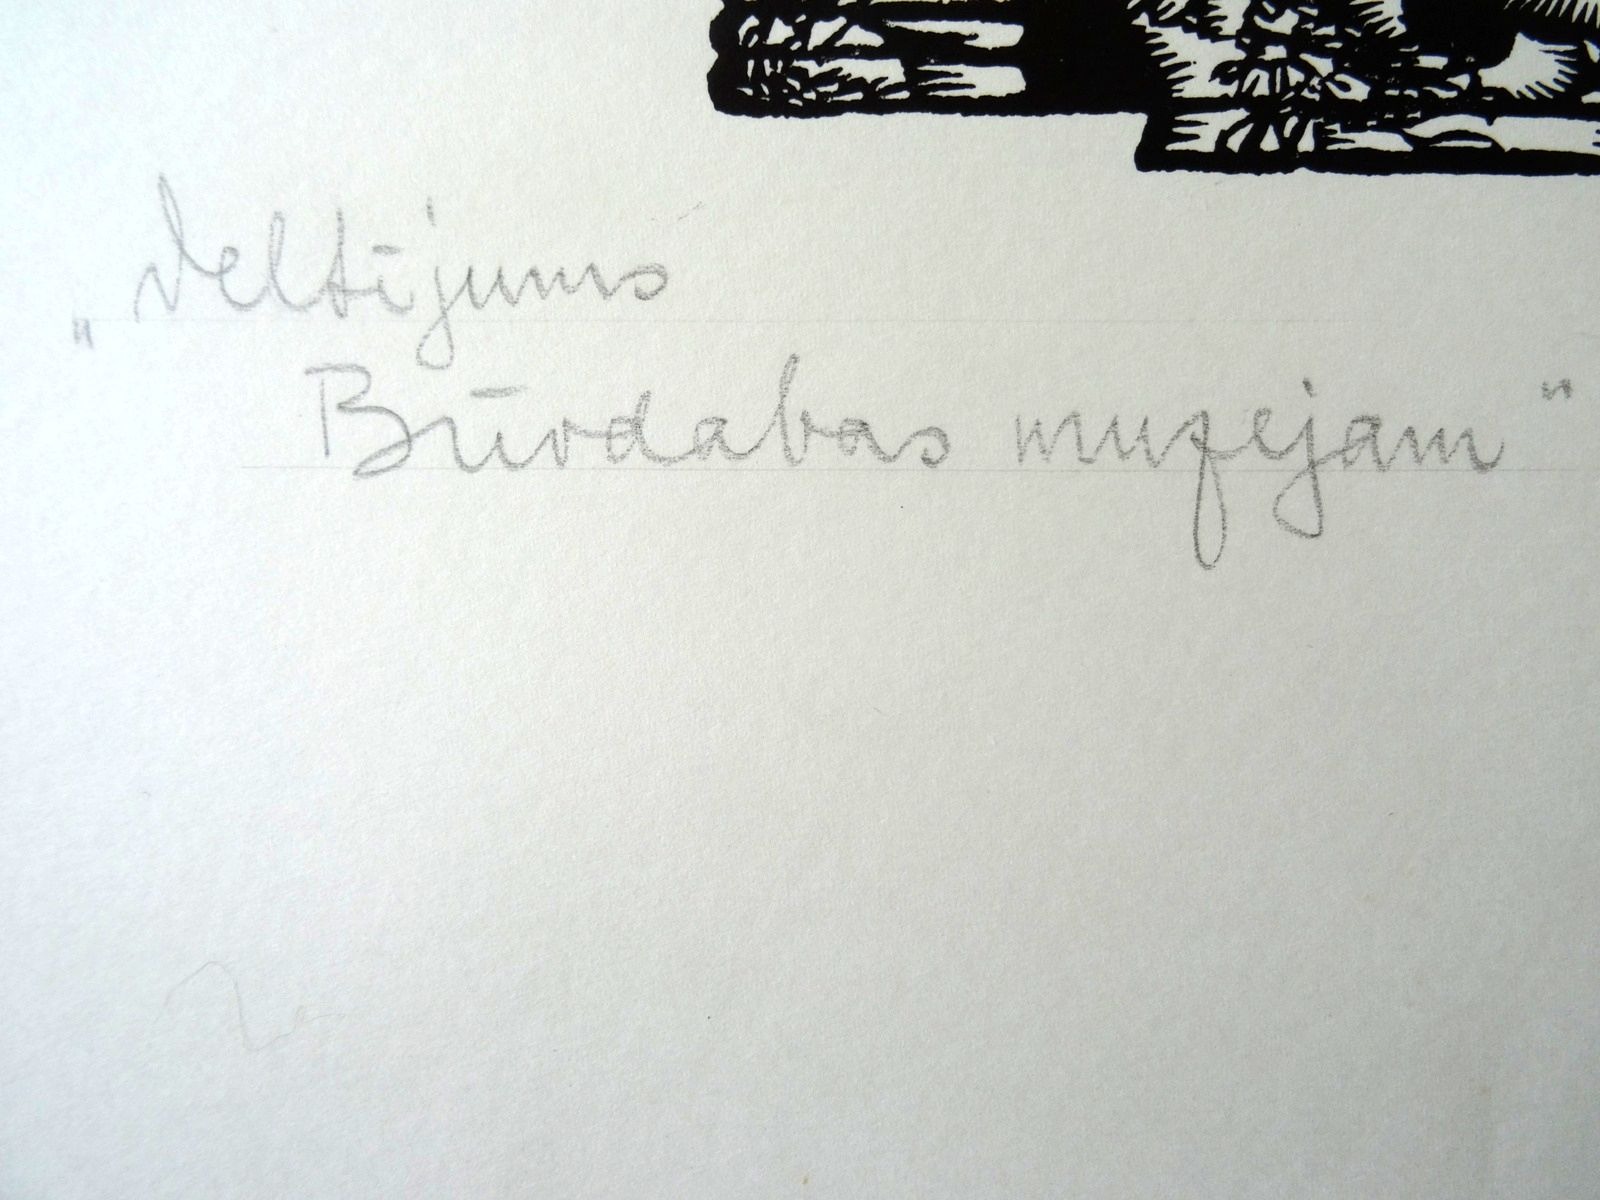 „Veltījums
Būvdabas muzejam"